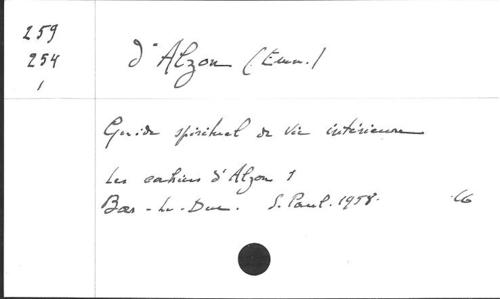 259
254
1
d'Alzon (Emm.)
Guide spirituel de vie intérieure
Les cahiers d'Alzon 1
Bar-le-Duc. S. Paul. 1958. 66